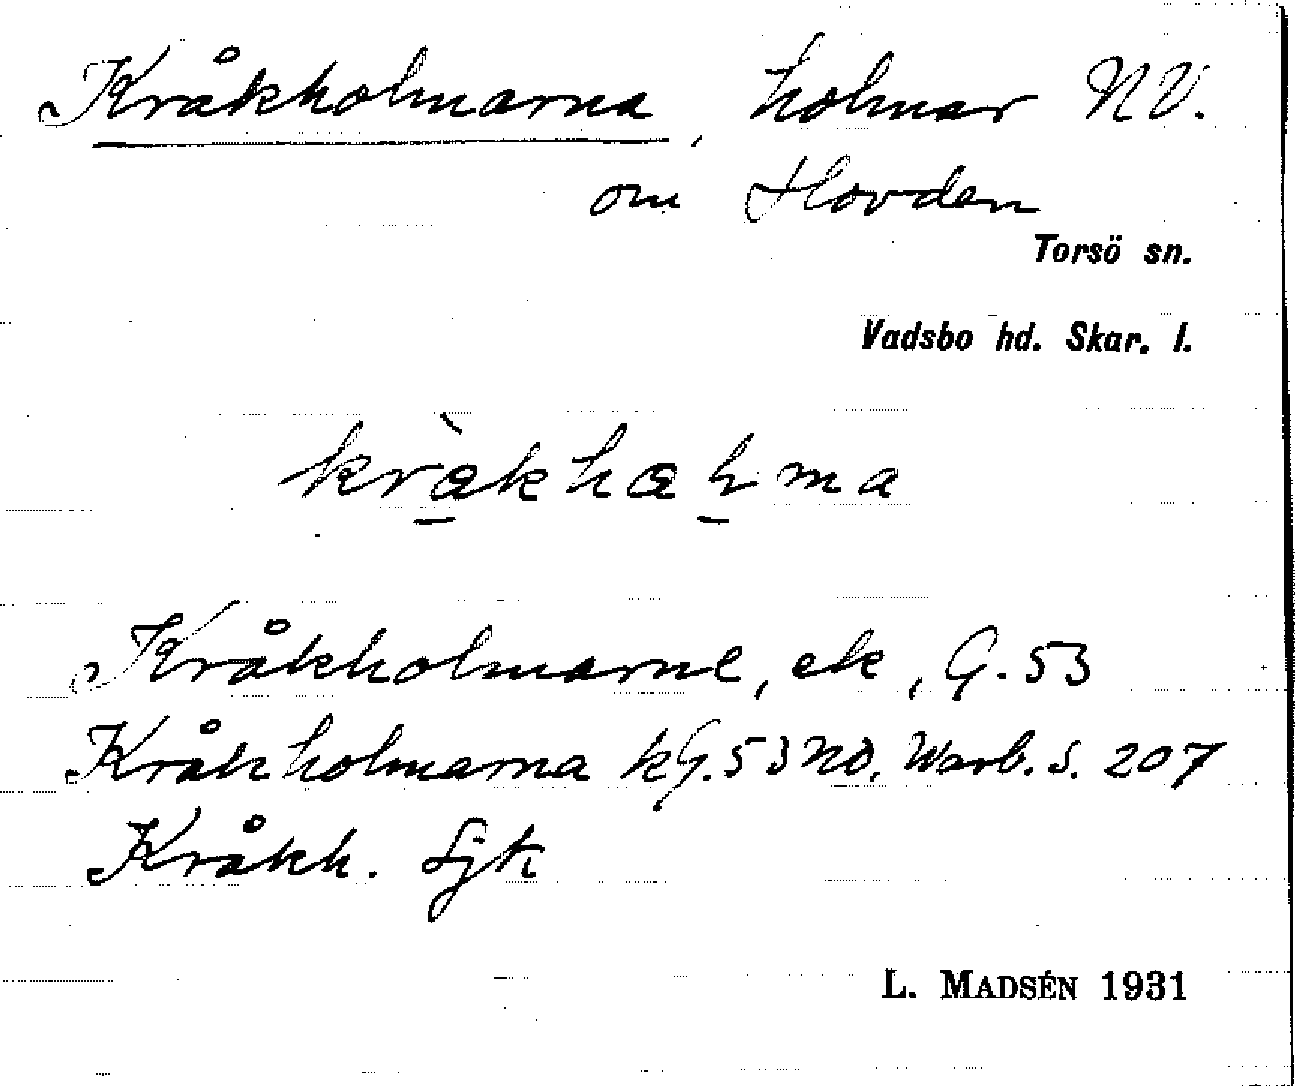 Kråkholmarna, holmar NV.
om Hovden
Torsö sn.
Vadsbo hd. Skar. l.
Kråkholmarne, ek, G. 53
Kråkholmarna kG. 53 NO. Warb. s. 207
Kråkh. Sjk
L. MADSÉN 1931